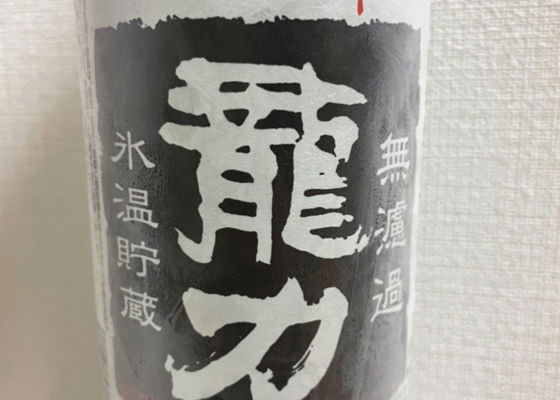 無濾過
龍力
氷温貯蔵